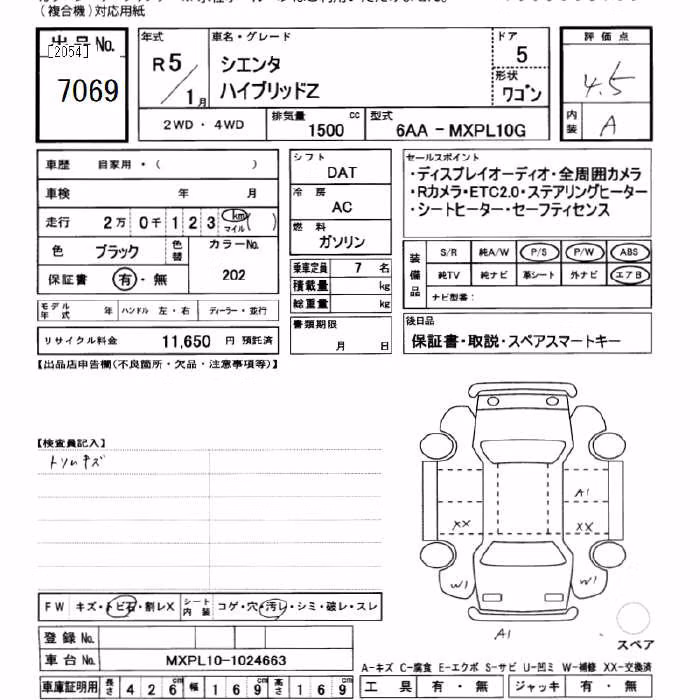 (複合機)対応用紙
出品No.
[2054]
7069
年式
R5/1月
車名・グレード
シエンタ
ハイブリッドZ
ドア
5
形状
ワゴン
評価点
4.5
内装
A
2WD・4WD
排気量 1500 cc
型式 6AA-MXPL10G
車歴 自家用・( )
車検 年 月
走行 2万 0千 1 2 3 km マイル ( )
色 ブラック
色替
カラーNo.
202
保証書 有・無
モデル年式 年 ハンドル 左・右 ディーラー・並行
リサイクル料金 11,650 円 預託済
シフト
DAT
冷房
AC
燃料
ガソリン
乗車定員 7 名
積載量 kg
総重量 kg
書類期限
月 日
セールスポイント
・ディスプレイオーディオ・全周囲カメラ
・Rカメラ・ETC2.0・ステアリングヒーター
・シートヒーター・セーフティセンス
装備品
S/R 純A/W P/S P/W ABS
純TV 純ナビ 革シート 外ナビ エアB
ナビ型番:
後日品
保証書・取説・スペアスマートキー
【出品店申告欄(不良箇所・欠品・注意事項等)】
【検査員記入】
トソムキズ
A1
XX
XX
W1
W1
A1
スペア
FW キズ・トビ石・割レX
シート内装 コゲ・穴・汚レ・シミ・破レ・スレ
登録No.
車台No. MXPL10-1024663
車庫証明用 長さ 426cm 幅 169cm 高さ 169cm
A-キズ C-腐食 E-エクボ S-サビ U-凹ミ W-補修 XX-交換済
工具 有・無 ジャッキ 有・無